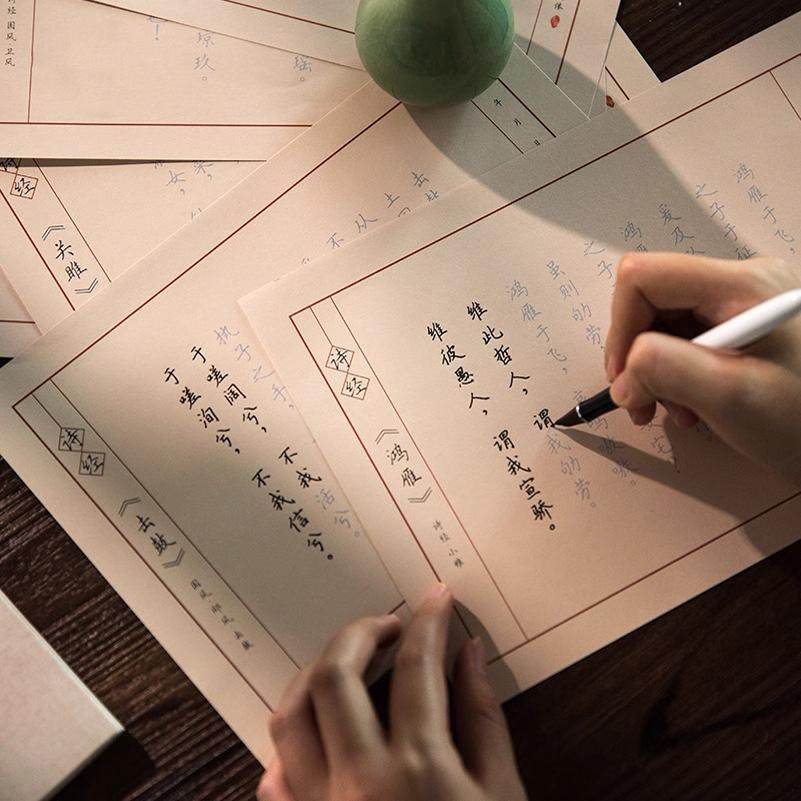 鸿雁于飞，
之子于征，
爰及
鸿雁
之子
虽则劬劳，
鸿雁于飞，
哀鸣嗷嗷。
维此哲人，谓我劬劳。
维彼愚人，谓我宣骄。
诗经
《鸿雁》
诗经·小雅
击
土
从
不
执子之手，
于嗟阔兮，不我活兮。
于嗟洵兮，不我信兮。
诗经
《击鼓》
国风·邶风·击鼓
年 月 日
诗经
《关雎》
女，
瑶。
琼玖。
！
诗经·国风·卫风